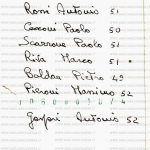 Romi Antonio 51
Cesconi Paolo 50
Scarrone Paolo 51
Riva Marco 51
Baldan Pietro 49
Pieroni Massimo 52
Gaspri Antonio 52